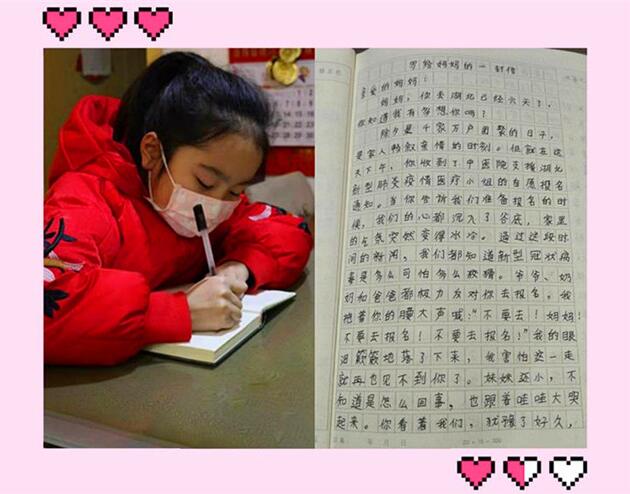 写给妈妈的一封信
亲爱的妈妈：
妈妈，你去湖北已经六天了，
你知道我有多想你吗？
除夕是千家万户团聚的日子，
是家人畅叙亲情的时刻。但就在这
天下午，你收到了中医院支援湖北
新型肺炎疫情医疗小组的自愿报名
通知。当你告诉我们准备报名的时
候，我们的心都沉入了谷底，家里
的气氛突然变得冰冷。通过这段时
间的新闻，我们都知道新型冠状病
毒是多么可怕多么狡猾。爷爷、奶
奶和爸爸都极力反对你去报名，我
抱着你的腰大声喊：“不要去！妈妈！
不要去报名！不要去报名！”我的眼
泪簌簌地落了下来，我害怕这一走
就再也见不到你了。妹妹还小，不
知道是怎么回事，也跟着哇哇大哭
起来。你看着我们，犹豫了好久，
年 月 日